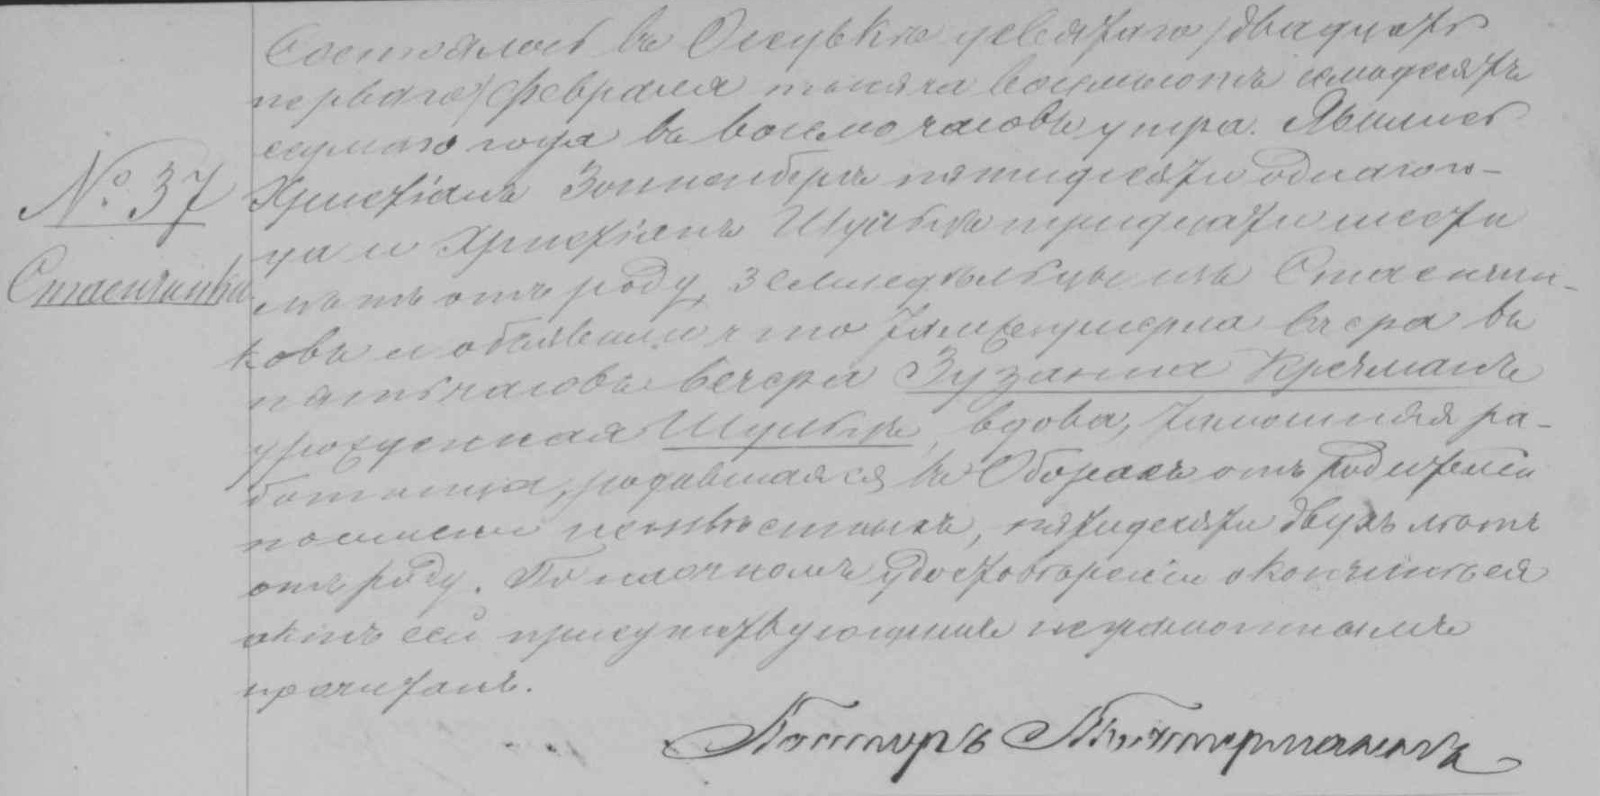 № 37
Стасинки
Состоялось въ Осувкѣ девятаго /двадцать
перваго/ Февраля тысяча восемьсотъ семьдесятъ
седьмаго года въ восемь часовъ утра. Явились
Християнъ Зонненбергъ пятидесяти однаго го-
да и Християнъ Шульцъ тридцати шести
лѣтъ отъ роду, земледѣльцы изъ
ковъ и объявили что тамъ умерла вчера въ
пять часовъ вечера Зузанна Кречманъ
урожденная Шульцъ, вдова, тамошняя ра-
ботница, родившаяся въ Оборахъ отъ родителей
неизвѣстныхъ, пятидесяти двухъ лѣтъ
отъ роду. По наочномъ удостовѣреніи о кончинѣ ея
актъ сей присутствующимъ неграмотнымъ
прочитанъ.
Пасторъ